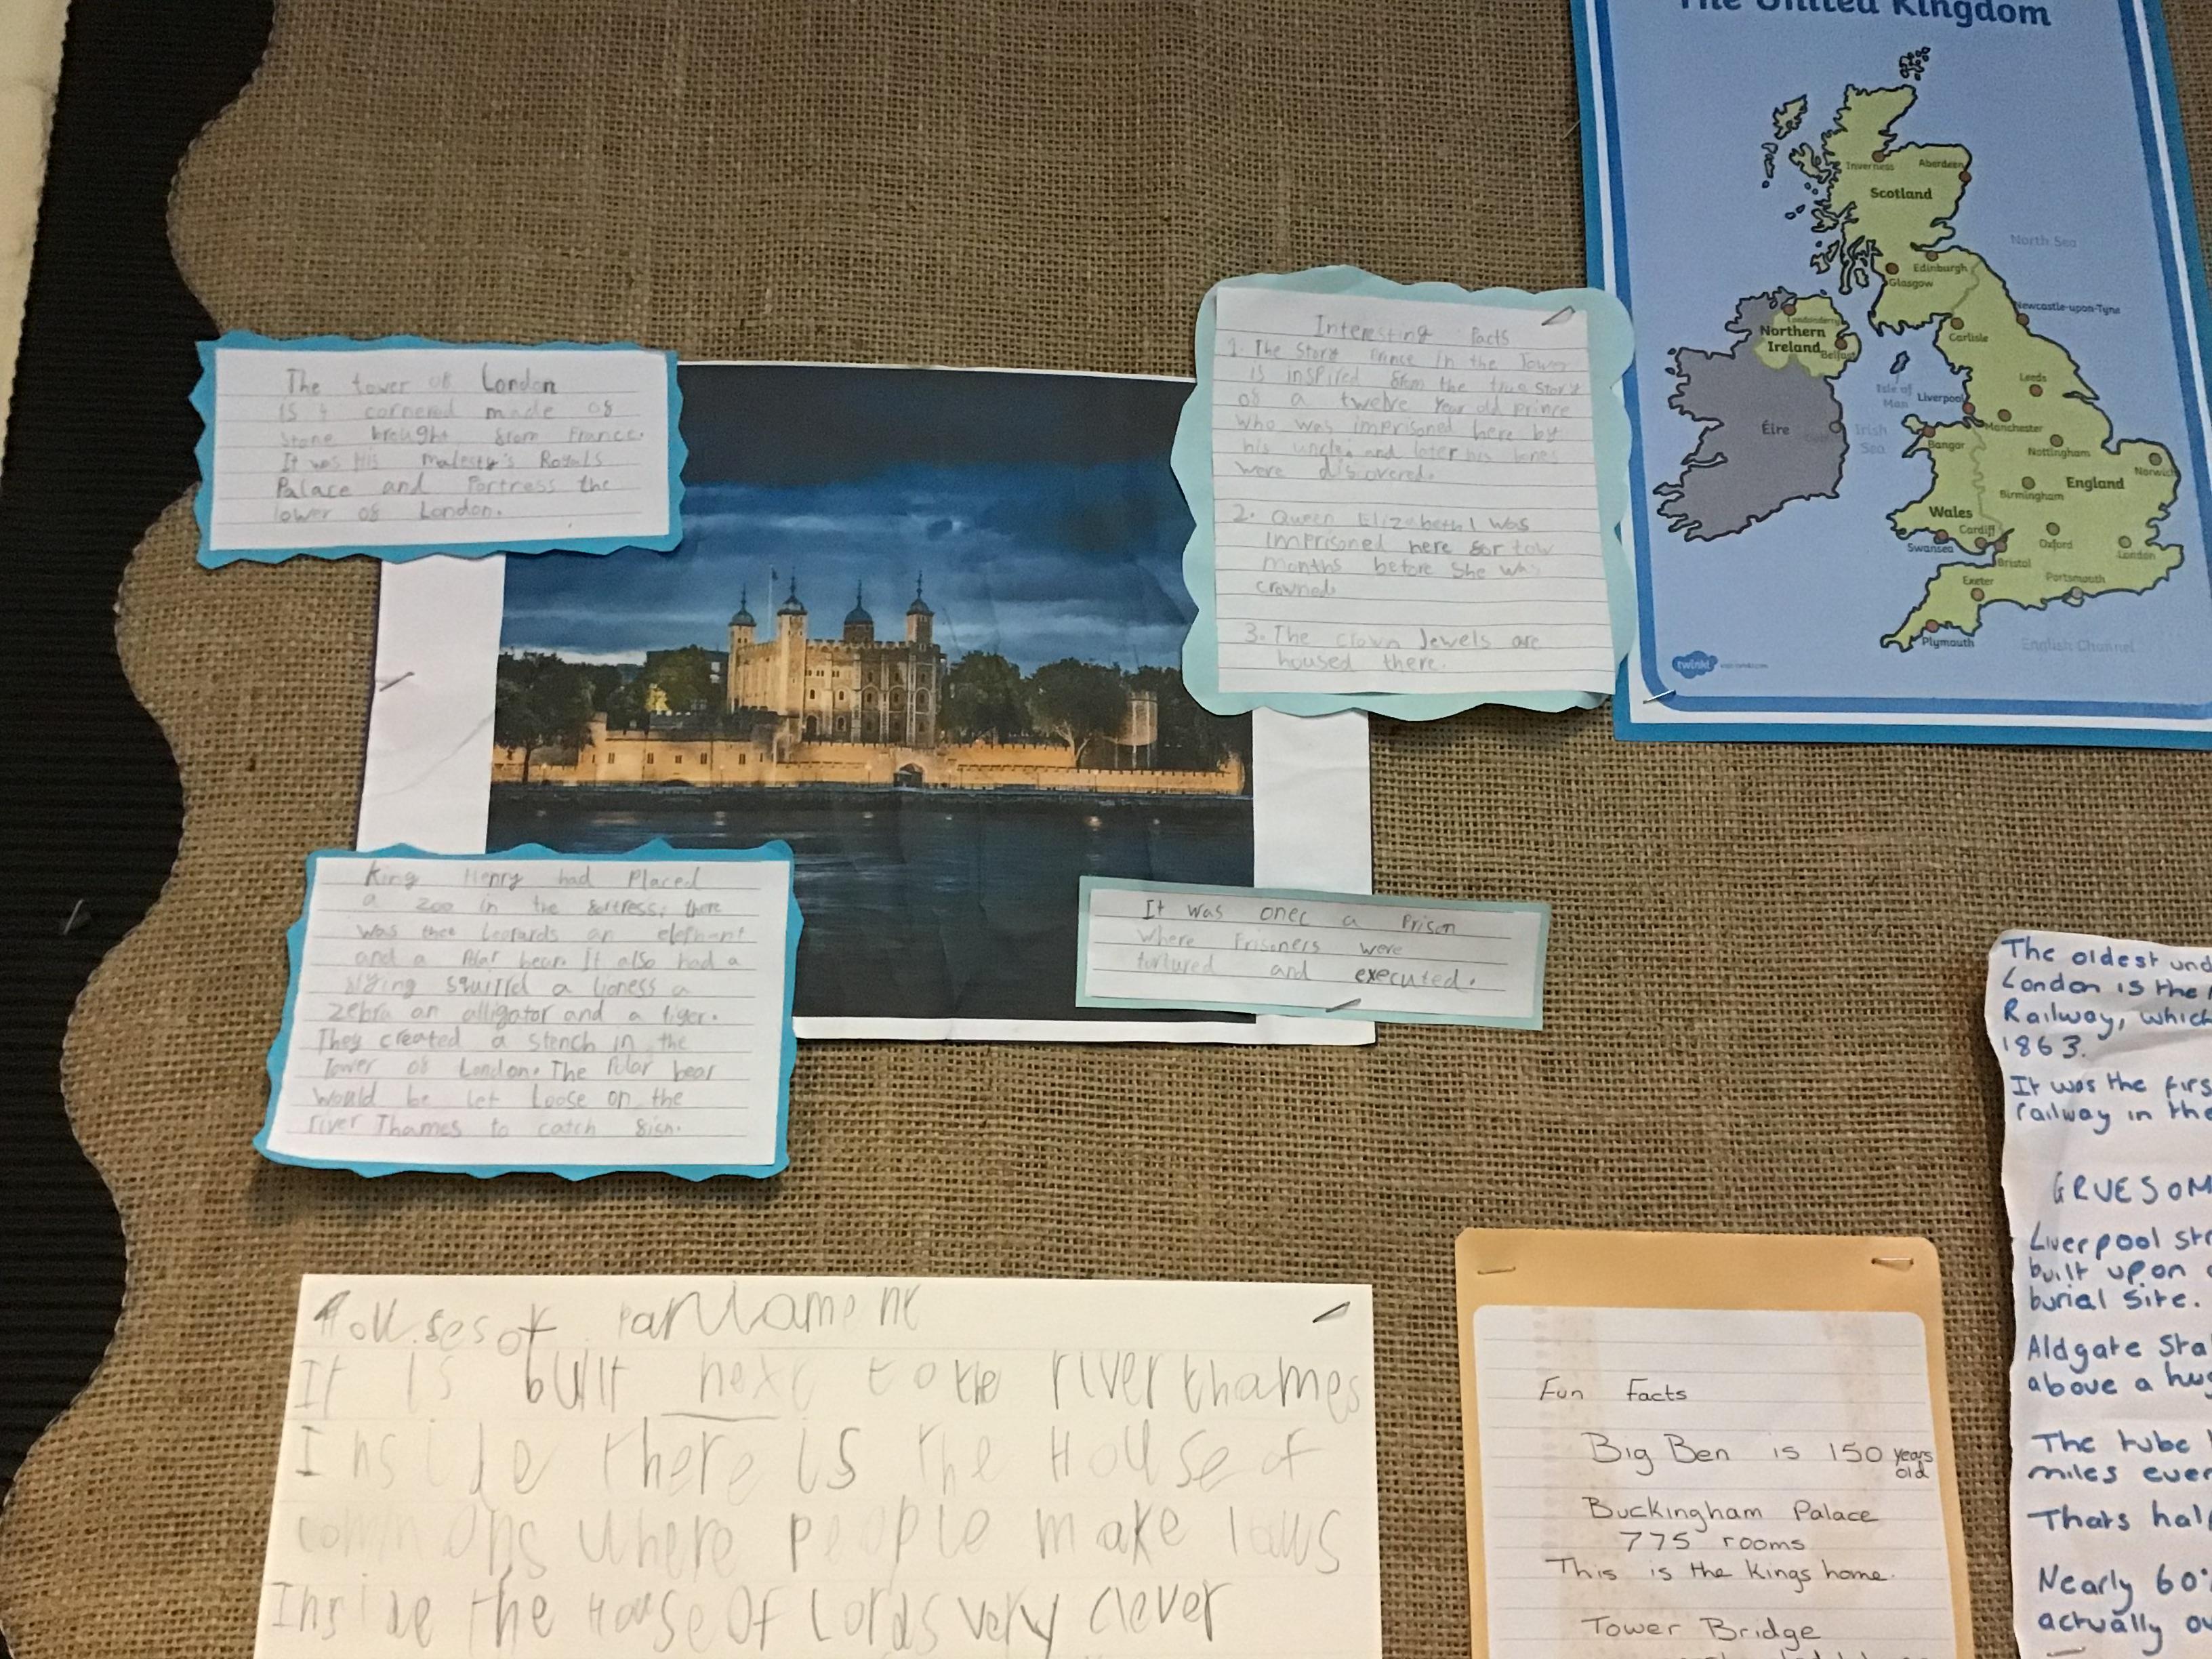 The United Kingdom
Inverness
Aberdeen
Scotland
North Sea
Edinburgh
Glasgow
Newcastle-upon-Tyne
Londonderry
Northern
Ireland
Belfast
Carlisle
Isle of
Man
Leeds
Liverpool
Manchester
Éire
Irish
Sea
Bangor
Nottingham
Norwich
England
Birmingham
Wales
Cardiff
Swansea
Oxford
London
Bristol
Exeter
Portsmouth
Plymouth
English Channel
twinkl
The tower of London
is 4 cornered made of
stone brought from France.
It was His malesty's Royals
Palace and Fortress the
tower of London.
Interesting facts
1. The Story Prince in the Tower
is inspired from the true story
of a twelve year old prince
who was imprisoned here by
his uncle, and later his bones
were discovered.
2. Queen Elizabeth I was
imprisoned here for tow
months before she was
crowned.
3. The clown Jewels are
housed there.
King Henry had Placed
a zoo in the fortress, there
was thee leopards an elephant
and a Polar bear. It also had a
flying squirrel a lioness a
zebra an alligator and a tiger.
They created a stench in the
tower of London. The Polar bear
would be let loose on the
river Thames to catch fish.
It was onec a Prison
where Prisoners were
tortured and executed.
Houses of parliament
It is built next to the river thames
Inside there is the House of
commons where people make laws
Inside the House Of Lords very clever
Fun Facts
Big Ben is 150 years
old
Buckingham Palace
775 rooms
This is the kings home.
Tower Bridge
The oldest und
London is the
Railway, which
1863.
It was the firs
railway in the
GRUESOM
Liverpool str
built upon
burial site.
Aldgate Sta
above a hu
The tube
miles ever
Thats hal
Nearly 60%
actually ou